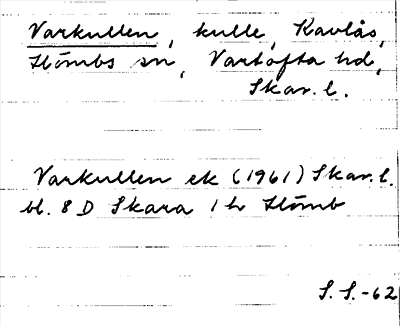 Varkullen, kulle, Kavlås,
Slömbs sn, Vartofta hd,
Skar. l.
Varkullen ek (1961) Skar. l.
bl. 8 D Skara 1 h Stömb
S. S. -62